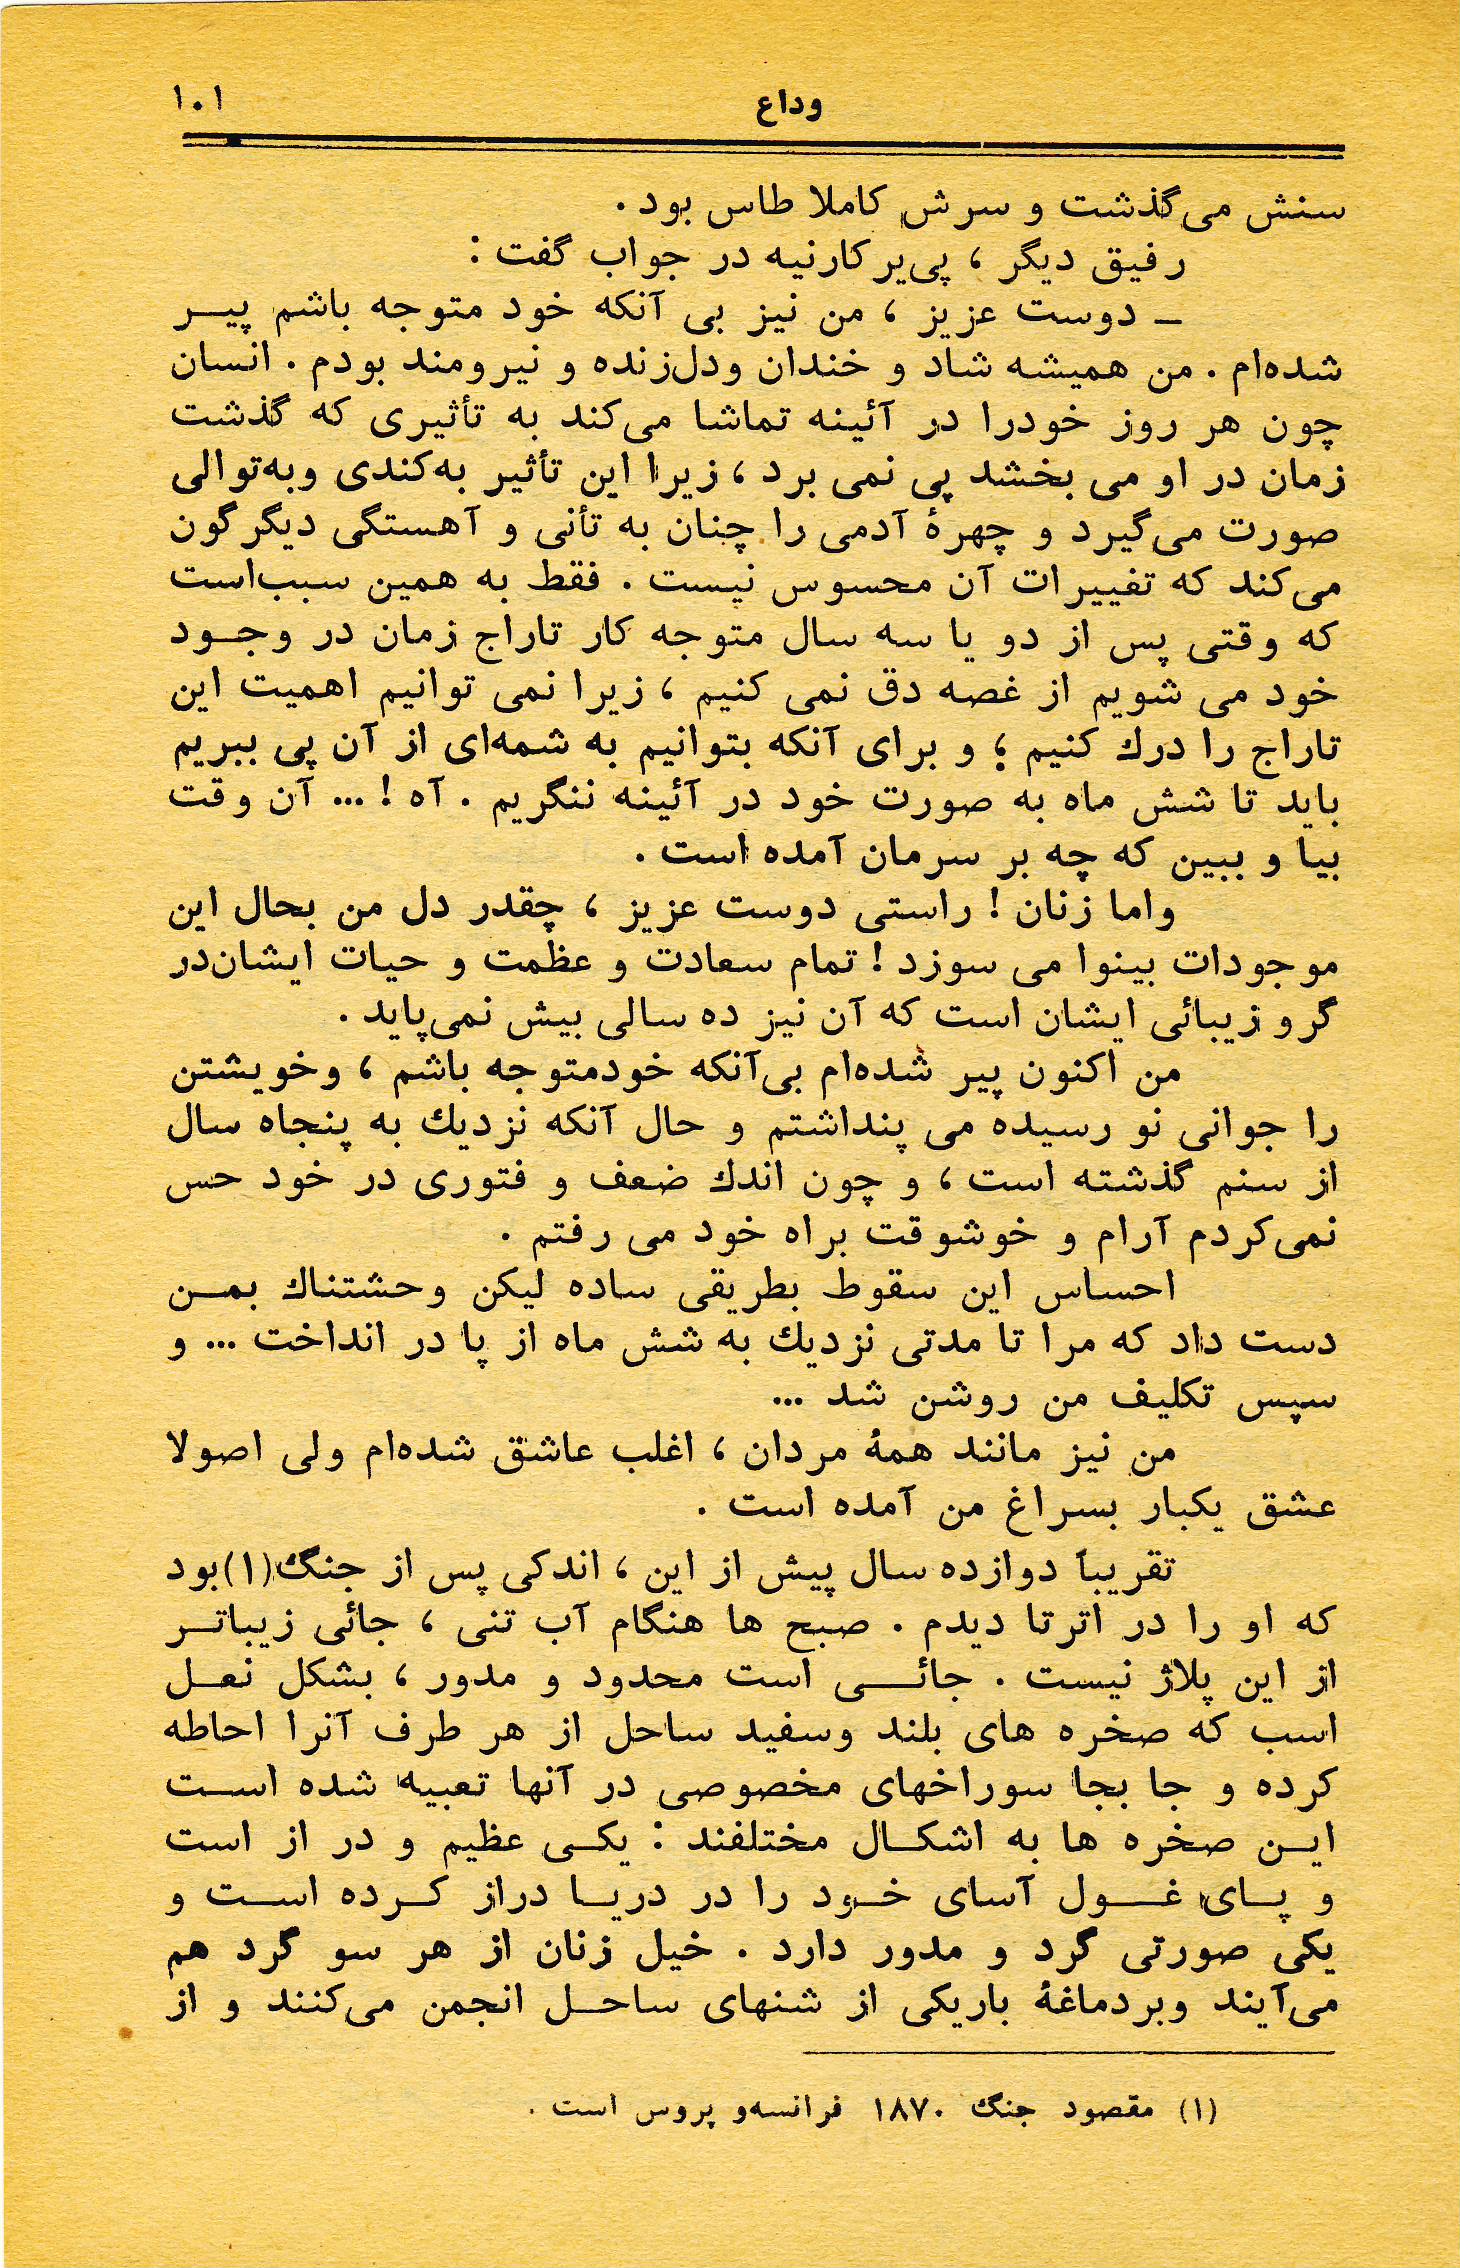 وداع
۱۰۱
سنش می‌گذشت و سرش کاملا طاس بود .
رفیق دیگر ، پی‌یر کارنیه در جواب گفت :
ـ دوست عزیز ، من نیز بی آنکه خود متوجه باشم پیـــر
شده‌ام . من همیشه شاد و خندان ودل‌زنده و نیرومند بودم . انسان
چون هر روز خودرا در آئینه تماشا می‌کند به تأثیری که گذشت
زمان در او می بخشد پی نمی برد ، زیرا این تأثیر به‌کندی وبه‌توالی
صورت می‌گیرد و چهرهٔ آدمی را چنان به تأنی و آهستگی دیگرگون
می‌کند که تغییرات آن محسوس نیست . فقط به همین سبب‌است
که وقتی پس از دو یا سه سال متوجه کار تاراج زمان در وجـود
خود می شویم از غصه دق نمی کنیم ، زیرا نمی توانیم اهمیت این
تاراج را درك کنیم ؛ و برای آنکه بتوانیم به شمه‌ای از آن پی ببریم
باید تا شش ماه به صورت خود در آئینه ننگریم . آه ! ... آن وقت
بیا و ببین که چه بر سرمان آمده است .
واما زنان ! راستی دوست عزیز ، چقدر دل من بحال این
موجودات بینوا می سوزد ! تمام سعادت و عظمت و حیات ایشان‌در
گرو زیبائی ایشان است که آن نیز ده سالی بیش نمی‌پاید .
من اکنون پیر شده‌ام بی‌آنکه خودمتوجه باشم ، وخویشتن
را جوانی نو رسیده می پنداشتم و حال آنکه نزدیك به پنجاه سال
از سنم گذشته است ، و چون اندك ضعف و فتوری در خود حس
نمی‌کردم آرام و خوشوقت براه خود می رفتم .
احساس این سقوط بطریقی ساده لیکن وحشتناك بمـن
دست داد که مرا تا مدتی نزدیك به شش ماه از پا در انداخت ... و
سپس تکلیف من روشن شد ...
من نیز مانند همهٔ مردان ، اغلب عاشق شده‌ام ولی اصولا
عشق یکبار بسراغ من آمده است .
تقریباً دوازده سال پیش از این ، اندکی پس از جنگ(۱)بود
که او را در اترتا دیدم . صبح ها هنگام آب تنی ، جائی زیباتـر
از این پلاژ نیست . جائـــی است محدود و مدور ، بشکل نعـل
اسب که صخره های بلند وسفید ساحل از هر طرف آنرا احاطه
کرده و جا بجا سوراخهای مخصوصی در آنها تعبیه شده اسـت
ایـن صخره ها به اشکـال مختلفند : یکـی عظیم و در از است
و پـای غـــول آسای خـود را در دریـا دراز کـرده اسـت و
یکی صورتی گرد و مدور دارد . خیل زنان از هر سو گرد هم
می‌آیند وبردماغهٔ باریکی از شنهای ساحـل انجمن می‌کنند و از
(۱) مقصود جنگ ۱۸۷۰ فرانسه‌و پروس است .